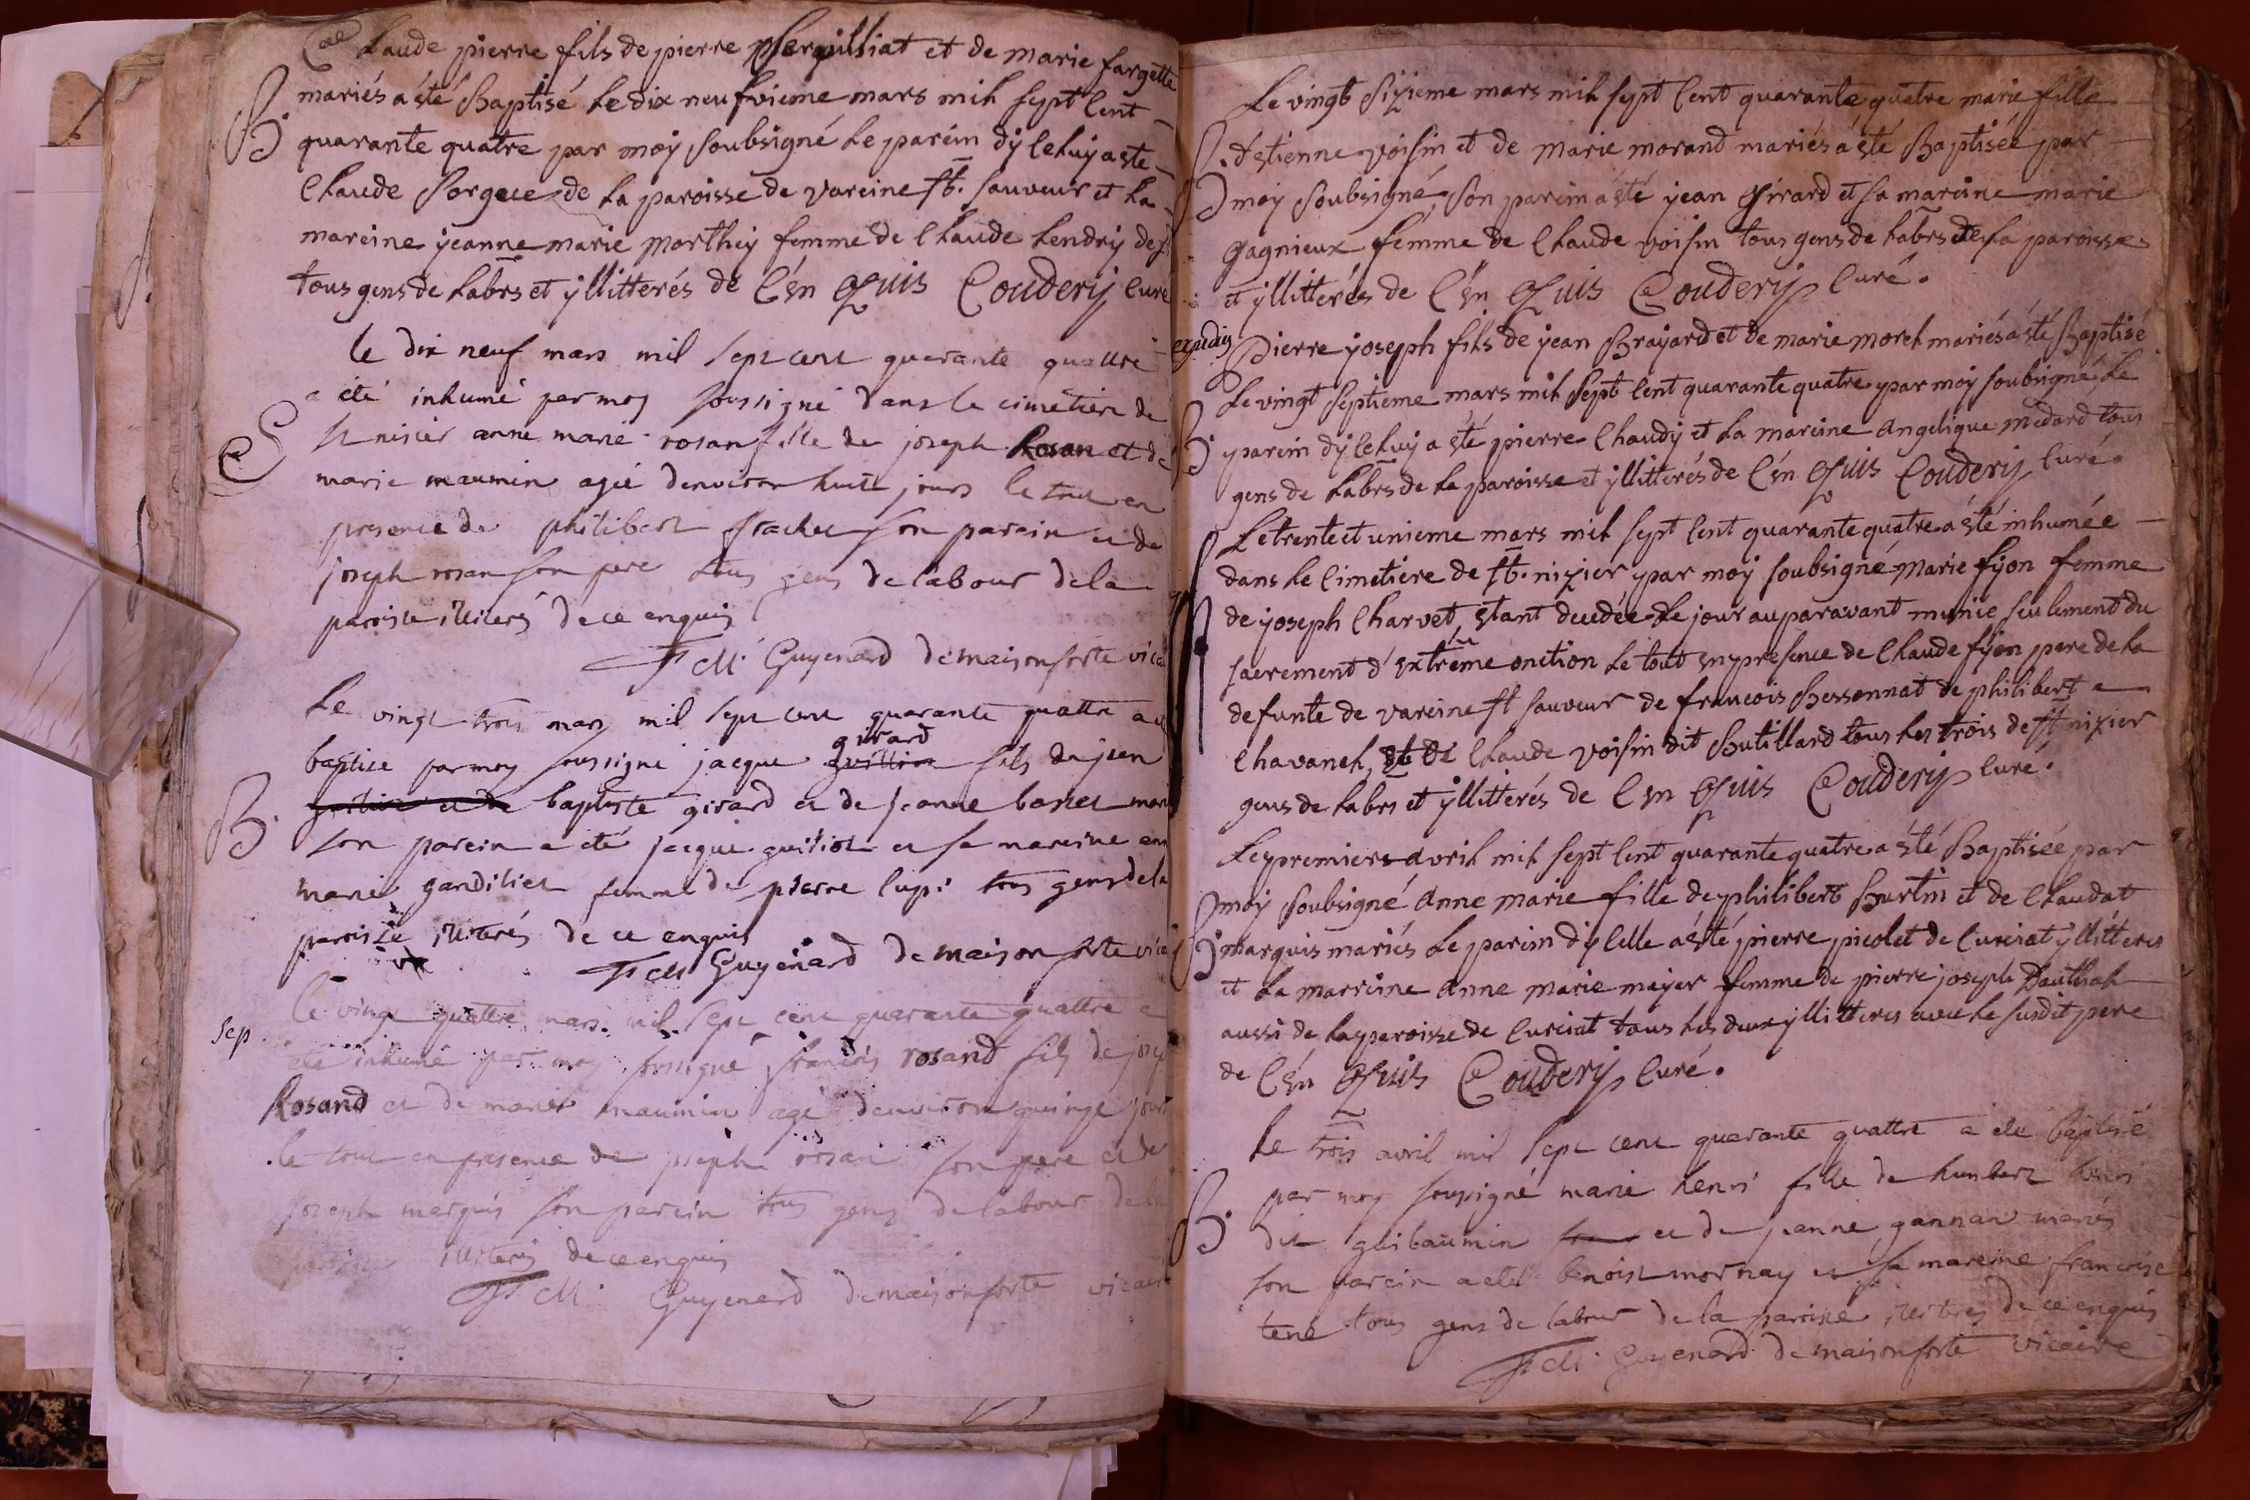 Claude pierre fils de pierre et de marie fargette
B. mariés a été Baptisé le dix neufvieme mars mil sept Cent
quarante quatre par moÿ soubsigné le parein dÿ celuÿ a éste
Claude de la paroisse de vareine st. sauveur et la
mareine jeanne marie morthej femme de Claude hendrij dej
tous gens de labrs et ÿllitterés de C'én Quis Couderij Curé
le dix neuf mars mil sept cent quarante quattre
a été inhumé par moy soussigné dans le cimetiere de
S st nisier anne marie rosan fille de joseph Rosan et de
marie maumin agée denviron huit jours le tout en
presence de philibert son parein et de
joseph rosan son pere tous gens de labour de la
paroisse illiterés de ce enquis
F cM Guyenard demaisonforte vica
Le vingt trois mars mil sept cent quarante quattre a été
girard
baptisé par moy soussigné jacque guillin fils de jean
B. baptiste girard et de jeanne mari
son parein a été jacque guiliot et sa mareine ann
marie gandiliet femme de pierre lupi tous gens de la
paroisse illiterés de ce enquis
F cM Guyenard de maisonforte vica
Sep Le vingt quattre mars mil sept cent quarante quattre a
été inhumé par moy soussigné francois rosand fils de josep
Rosand et de marie maumin agé denviron quinze jours
le tout en presence de joseph rosan son pere et de
joseph marquis son parein tous gens de labour de la
paroisse illiterés de ce enquis
F cM Guyenard demaisonforte vicaire
Le vingt sixieme mars mil sept Cent quarante quatre marie fille
d'estienne voisin et de marie morand mariés a été Baptisée par
B moÿ soubsigné, son parein a été jean Girard et sa mareine marie
gagnieux femme de Claude voisin tous gens de labrs de sa paroisse
et ÿllitterés de C'én Quis Couderij Curé.
Pierre joseph fils de jean Brajard et de marie morel mariés a été Baptisé
le vingt septieme mars mil sept Cent quarante quatre par moÿ soubsigné, le
B. parein dÿ celuÿ a été pierre Chaudÿ et la mareine Angelique medard tous
gens de labrs de la paroisse et ÿllitterés de C'én Quis Couderij Curé.
Le trente et unieme mars mil sept Cent quarante quatre a été inhumée
dans le Cimetiere de st. nizier par moÿ soubsigné marie fijon femme
de joseph Charvet, étant decedée le jour auparavant munie seulement du
sacrement d'extrême onction le tout en presence de Claude fijon pere de la
defunte de vareine st sauveur de francois Bessonnat de philibert
Chavanel, et de Claude voisin dit Butillard tous les trois de st. nizier
gens de labrs et ÿllitterés de C'én Quis Couderij Curé.
Le premier avril mil sept Cent quarante quatre a été Baptisée par
moÿ soubsigné Anne marie fille de philibert Burtin et de Claudat
B. marquis mariés le parein dÿ Celle a été pierre picolet de Curciat ÿllitteres
et la marreine Anne marie majer femme de pierre joseph
aussi de la paroisse de Curciat tous les deux ÿllitteres avec le susdit pere
de C'én Quis Couderij Curé.
Le trois avril mil sept cent quarante quattre a été baptisé
par moy soussigné marie henri fille de humbert henri
B. dit guibaumin et de jeanne gannar mariés
son parein a été benoist mornay et sa mareine francoise
tené tous gens de labour de la paroisse illitrés de ce enquis
F cM Guyenard demaisonforte vicaire